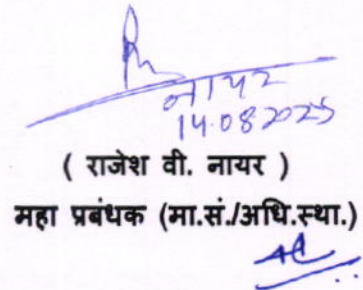 नायर
14.08.2025
( राजेश वी. नायर )
महा प्रबंधक (मा.सं./अधि.स्था.)